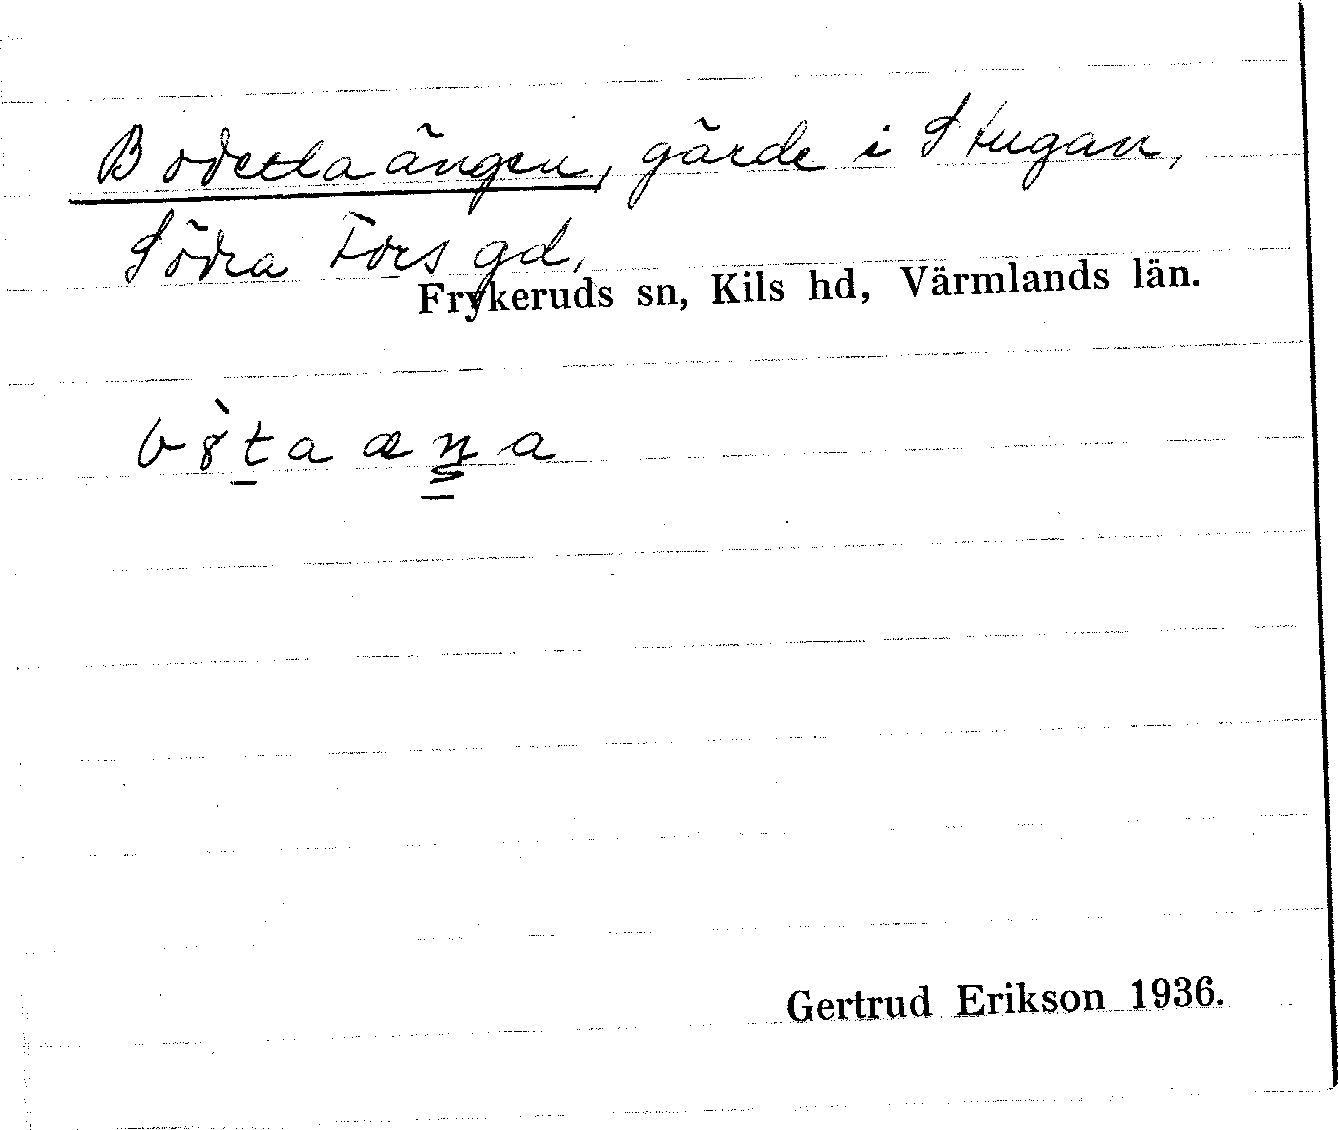 Bodettaängen, gärde i Stugan,
Södra Fors gd,
Frykeruds sn, Kils hd, Värmlands län.
Gertrud Erikson 1936.